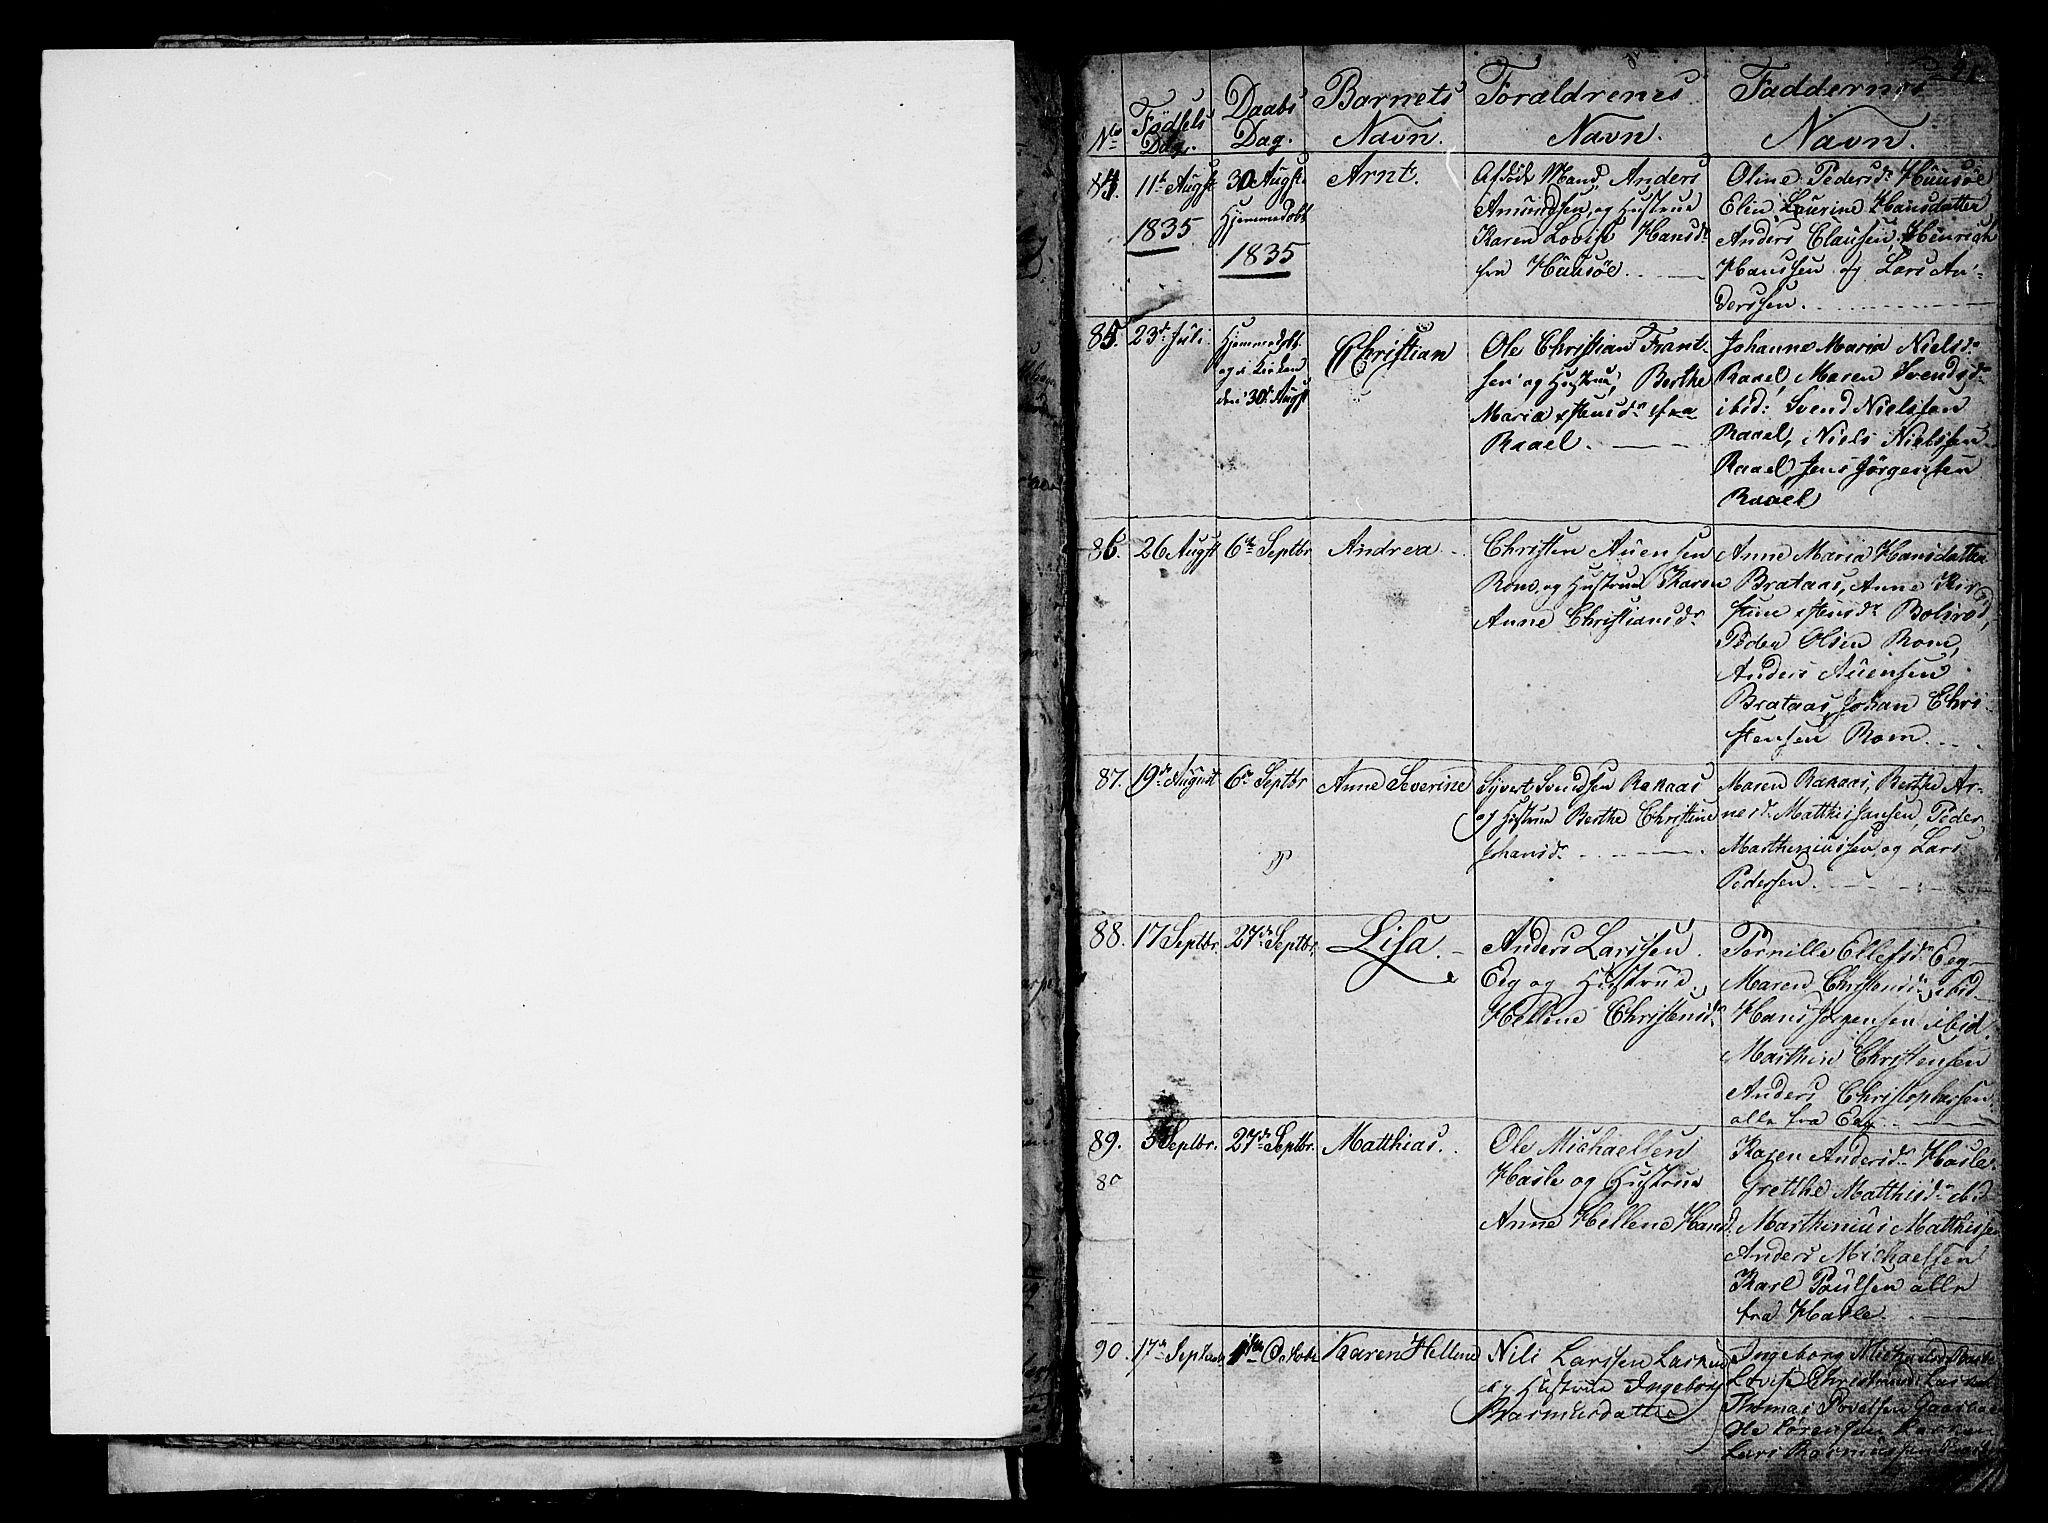 No
Fødsels
Dag.
Daabs
Dag.
Barnets
Navn.
Forældrenes
Navn.
Faddernes
Navn.
84. 11te Augst
1835
30 Augst.
Hjemmedøbt
1835
Arnt.
Afdøde Mand, Anders
Amundsen, og Hustrue
Karen Lovise Hansdr
fra Huusøe.
Oline Pedersdr Huusøe
Elin Laurine Hansdatter
Anders Clausen, Henrich
Hanssen og Lars An-
derssen.
85. 23de Juli
Hjemmedøbt
og i Kirken
den 30te Augst
Christian
Ole Christian Frant-
sen og Hustrue, Berthe
Maria Hansdr fra
Raael.
Johanne Maria Nielsdr
Raael, Maren Svendsdr
ibid: Svend Nielsen
Raael, Niels Nielsen
Raael Jens Jørgensen
Raael
86. 26 Augst
6te Septbr
Andrea
Christen Auensen
Rom, og Hustrue Karen
Anne Christiansdr
Anne Maria Hansdatter
Brataas, Anne Kir-
stine Hansdr Bolærød,
Peder Olsen Rom,
Anders Auensen
Brataas, Johan Chri-
stensen Rom
87. 19de August
6te Septbr
Anne Severine
Syvert Svendsen Rakaas
og Hustrue Berthe Christine
Johansdr
Maren Rakaas, Berthe Ar-
nesdr Matthis Jansen, Peder
Marthiniussen, og Lars
Pedersen.
88. 17 Septbr.
27de Septbr.
Lisa.
Anders Larssen
Eeg og Hustrue
Hellene Christensdr
Pernille Ellefsdr Eeg
Maren Christensdr ibid
Hans Jørgensen ibid
Marthin Christensen
Anders Christophersen
alle fra Eeg
89. 5 Septbr.
80
27de Septbr.
Matthias.
Ole Michaelsen
Hasle og Hustrue
Anne Hellene Hansd:
Karen Andersdr Hasle
Grethe Matthisdr ibid
Marthinius Matthisen
Anders Michaelsen
Karl Paulsen alle
fra Hasle.
90. 17de Septbr
1ste Octobr
Karen Hellene
Nils Larssen
og Hustrue Ingeborg
Rasmusdatter
Ingeborg
Lovise
Thomas Povelsen
Ole Sørensen
Lars Rasmussen